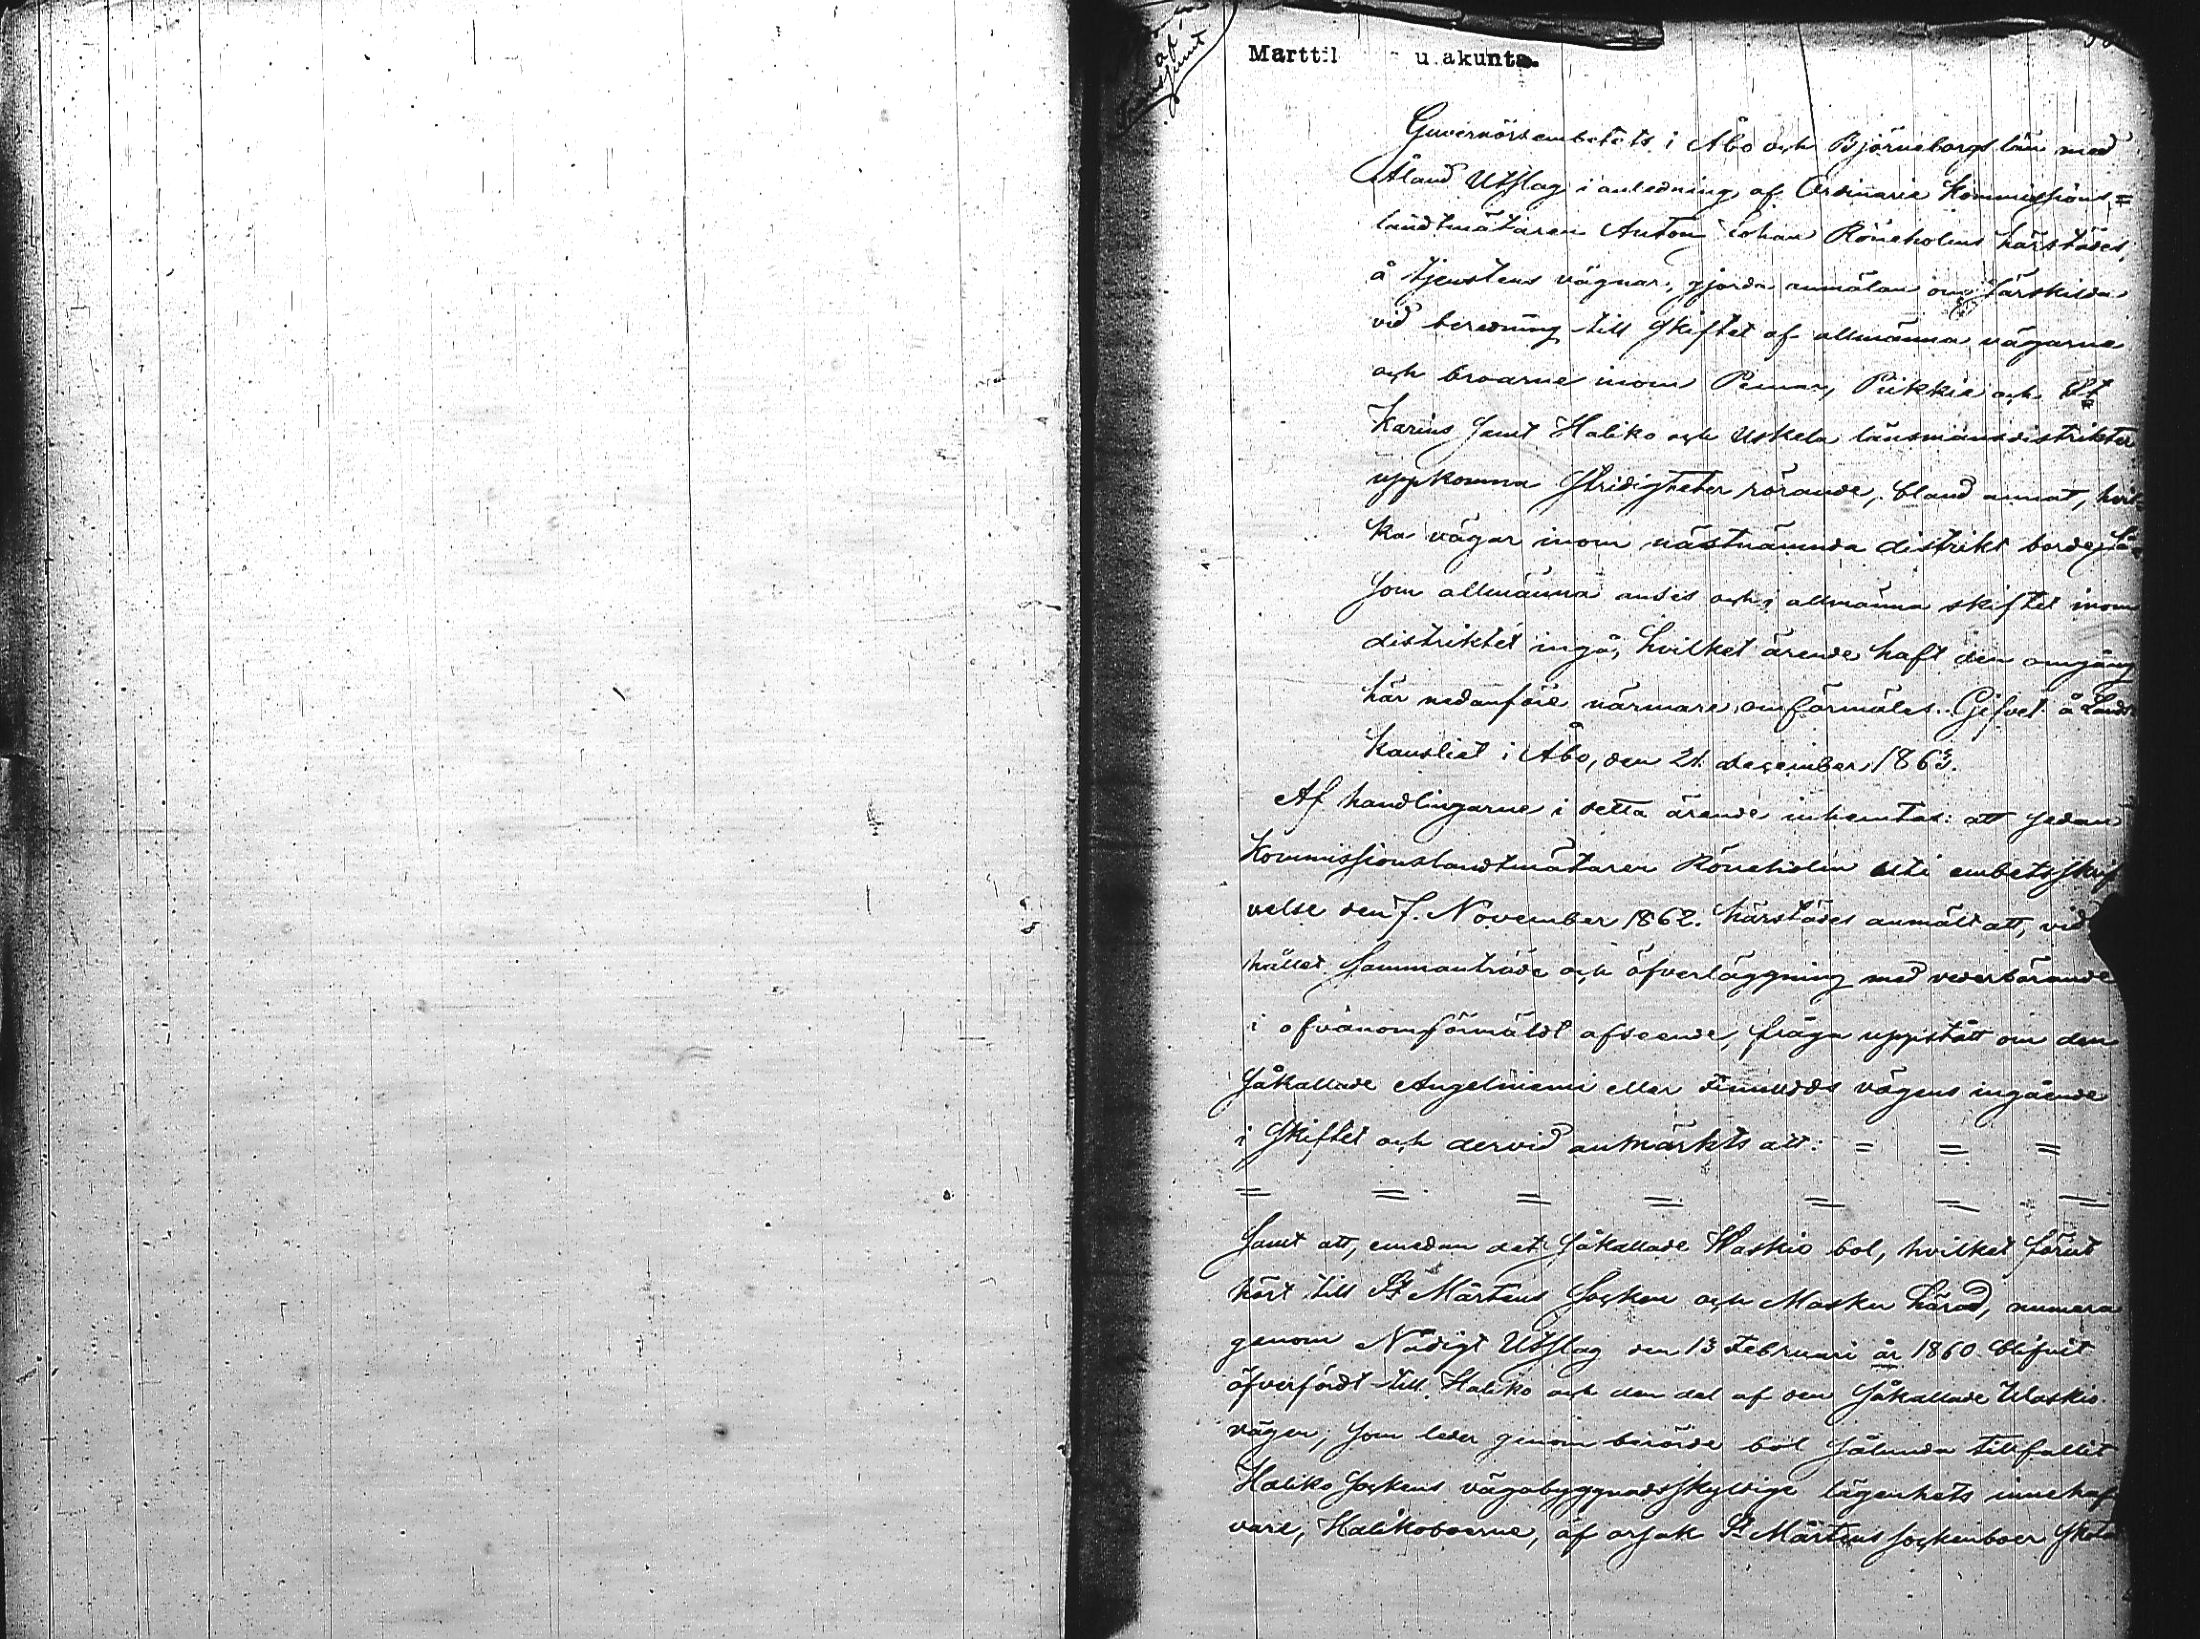 Marttil u.akunta.
Guvernörsembetets i Åbo och Björneborgs län med
Åland Utslag i anledning af Ordinarie Kommissions=
landtmätaren Anton Johan Röneholms härstädes,
å tjenstens vägnar, gjorda anmälan om särskilda
vid beredning till skiftet af allmänna vägarne
och broarne inom Pemar, Piikkie och St
Karins samt Haliko och Uskela länsmansdistrikter
uppkomna stridigheter rörande, bland annat, hvil=
ka vägar inom nästnämnda distrikt borde så=
som allmänna anses och i allmänna skiftet inom
distriktet ingå, hvilket ärende haft den omgång
här nedanföre närmare omförmäles. Gifvet å Lands=
kansliet i Åbo, den 21. december 1863.
Af handlingarne i detta ärende inhemtas: att sedan
Kommissionslandtmätaren Röneholm uti embetsskrif
velse den 7. November 1862. härstädes anmält att, vid
hållet sammanträde och öfverläggning med vederbörande
i ofvanomförmäldt afseende, fråga uppstått om den
såkallade Angelniemi eller Finnudds vägens ingående
i skiftet och dervid anmärkts att: = = =
= = = = = = =
samt att, emedan det såkallade Waskio bol, hvilket förut
hört till St Mårtens Socken och Masku härad, numera
genom Nådigt Utslag den 13 Februari år 1860 blifvit
öfverfördt till Haliko och den del af den såkallade Waskio
vägen, som leder genom berörde bol sålunda tillfallit
Haliko Sockens vägabyggnadsskyldige lägenhets innehaf
vare, Halikoboerne, af orsak St Mårtens sockenboer skola